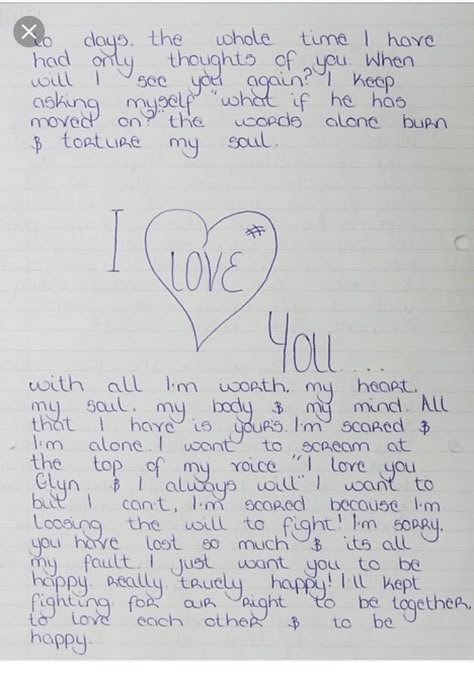 to days. the whole time I have
had only thoughts of you. When
will I see you again? I keep
asking myself "what if he has
moved on?" the words alone burn
& torture my soul.
I LOVE #
You....
with all I'm worth. my heart.
my soul. my body & my mind. All
that I have is yours. I'm scared &
I'm alone. I want to scream at
the top of my voice "I love you
Glyn & I always will" I want to
but I can't, I'm scared because I'm
loosing the will to fight! I'm sorry.
you have lost so much & its all
my fault. I just want you to be
happy. Really truely happy! I'll kept
fighting for our right to be together,
to love each other & to be
happy.